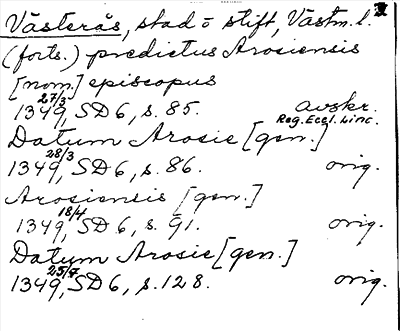 Västerås, stad o stift, Västm. l.
(forts.) predictus Arosiensis
[nom.] episcopus
1349 27/3, SD 6, s. 85. avskr.
Reg. Eccl. Linc.
Datum Arosie [gen.]
1349 28/3, SD 6, s. 86. orig.
Arosiensis [gen.]
1349 18/4, SD 6, s. 91. orig.
Datum Arosie [gen.]
1349 25/7, SD 6, s. 128. orig.